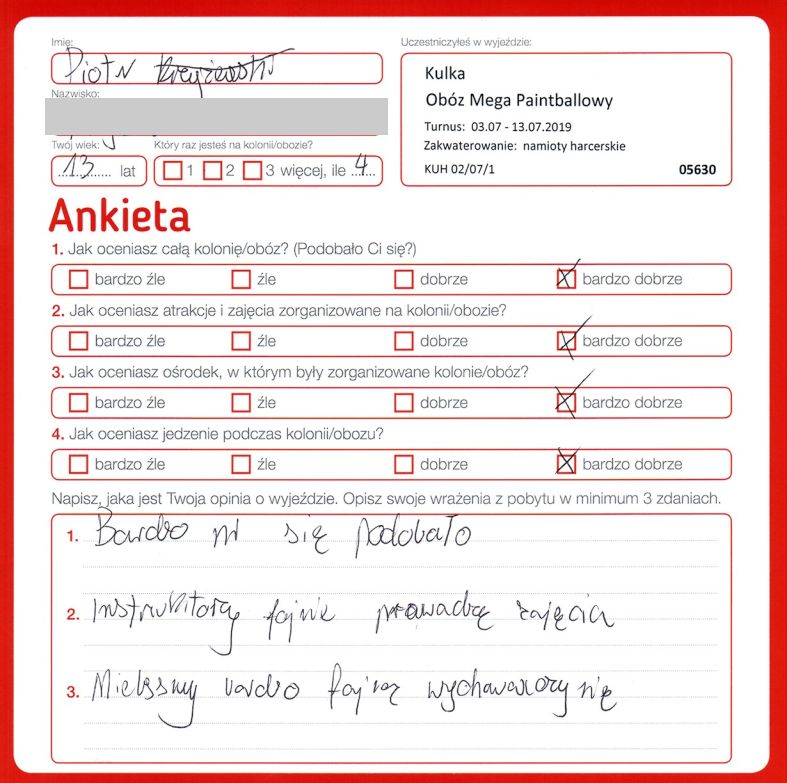 Imię:
Piotr
Nazwisko:
Twój wiek:
13 lat
Który raz jesteś na kolonii/obozie?
1 2 3 więcej, ile 4
Uczestniczyłeś w wyjeździe:
Kulka
Obóz Mega Paintballowy
Turnus: 03.07 - 13.07.2019
Zakwaterowanie: namioty harcerskie
KUH 02/07/1 05630
Ankieta
1. Jak oceniasz całą kolonię/obóz? (Podobało Ci się?)
bardzo źle źle dobrze bardzo dobrze
2. Jak oceniasz atrakcje i zajęcia zorganizowane na kolonii/obozie?
bardzo źle źle dobrze bardzo dobrze
3. Jak oceniasz ośrodek, w którym były zorganizowane kolonie/obóz?
bardzo źle źle dobrze bardzo dobrze
4. Jak oceniasz jedzenie podczas kolonii/obozu?
bardzo źle źle dobrze bardzo dobrze
Napisz, jaka jest Twoja opinia o wyjeździe. Opisz swoje wrażenia z pobytu w minimum 3 zdaniach.
1. Bardzo mi się podobało
2. Instruktorzy fajnie prowadzą zajęcia
3. bardzo fajną